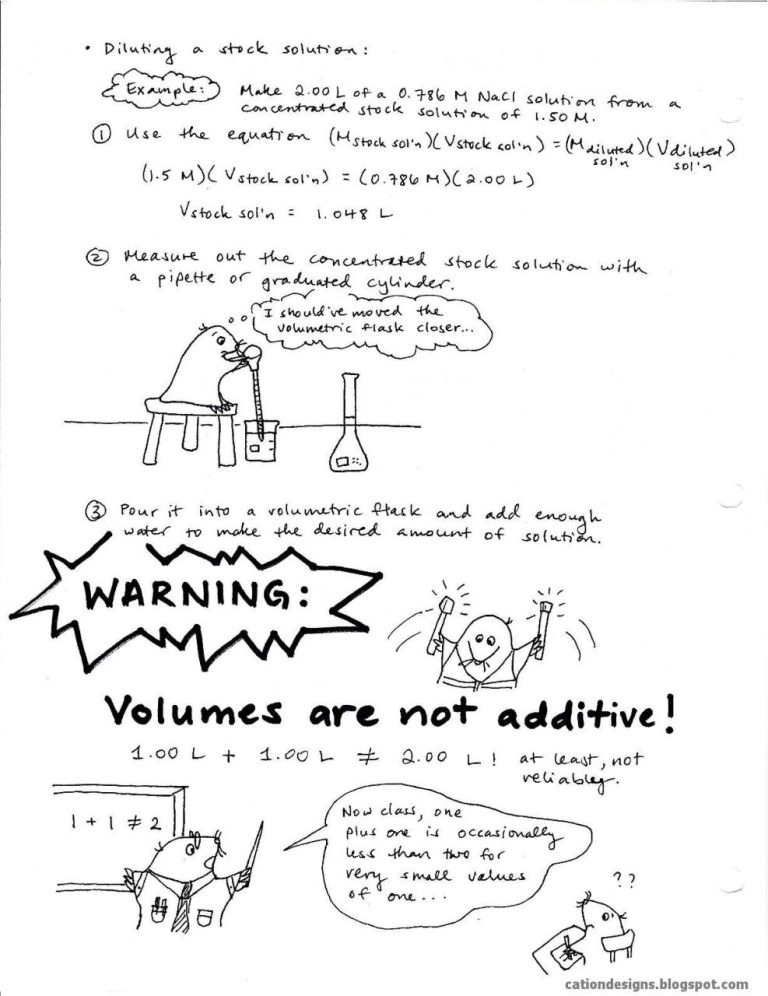 • Diluting a stock solution:
Example: Make 2.00 L of a 0.786 M NaCl solution from a
concentrated stock solution of 1.50 M.
① Use the equation (Mstock sol'n)(Vstock sol'n) = (Mdiluted sol'n)(Vdiluted sol'n)
(1.5 M)(Vstock sol'n) = (0.786 M)(2.00 L)
Vstock sol'n = 1.048 L
② Measure out the concentrated stock solution with
a pipette or graduated cylinder.
I should've moved the
volumetric flask closer...
③ Pour it into a volumetric flask and add enough
water to make the desired amount of solution.
WARNING:
Volumes are not additive!
1.00 L + 1.00 L ≠ 2.00 L! at least, not
reliably.
1 + 1 ≠ 2
Now class, one
plus one is occasionally
less than two for
very small values
of one...
??
cationdesigns.blogspot.com